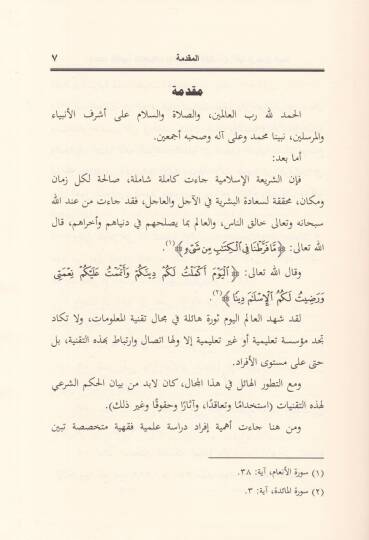 المقدمة ٧
مقدمة
الحمد لله رب العالمين، والصلاة والسلام على أشرف الأنبياء
والمرسلين، نبينا محمد وعلى آله وصحبه أجمعين.
أما بعد:
فإن الشريعة الإسلامية جاءت كاملة شاملة، صالحة لكل زمان
ومكان، محققة لسعادة البشرية في الآجل والعاجل، فقد جاءت من عند الله
سبحانه وتعالى خالق الناس، والعالم بما يصلحهم في دنياهم وأخراهم، قال
الله تعالى: ﴿مَّا فَرَّطْنَا فِي الْكِتَٰبِ مِن شَىْءٍ﴾(١).
وقال الله تعالى: ﴿الْيَوْمَ أَكْمَلْتُ لَكُمْ دِينَكُمْ وَأَتْمَمْتُ عَلَيْكُمْ نِعْمَتِى
وَرَضِيتُ لَكُمُ الْإِسْلَٰمَ دِينًا﴾(٢).
لقد شهد العالم اليوم ثورة هائلة في مجال تقنية المعلومات، ولا تكاد
تجد مؤسسة تعليمية أو غير تعليمية إلا ولها اتصال وارتباط بهذه التقنية، بل
حتى على مستوى الأفراد.
ومع التطور الهائل في هذا المجال، كان لابد من بيان الحكم الشرعي
لهذه التقنيات (استخدامًا وتعاقدًا، وآثارًا وحقوقًا وغير ذلك).
ومن هنا جاءت أهمية إفراد دراسة علمية فقهية متخصصة تبين
(١) سورة الأنعام، آية: ٣٨.
(٢) سورة المائدة، آية: ٣.